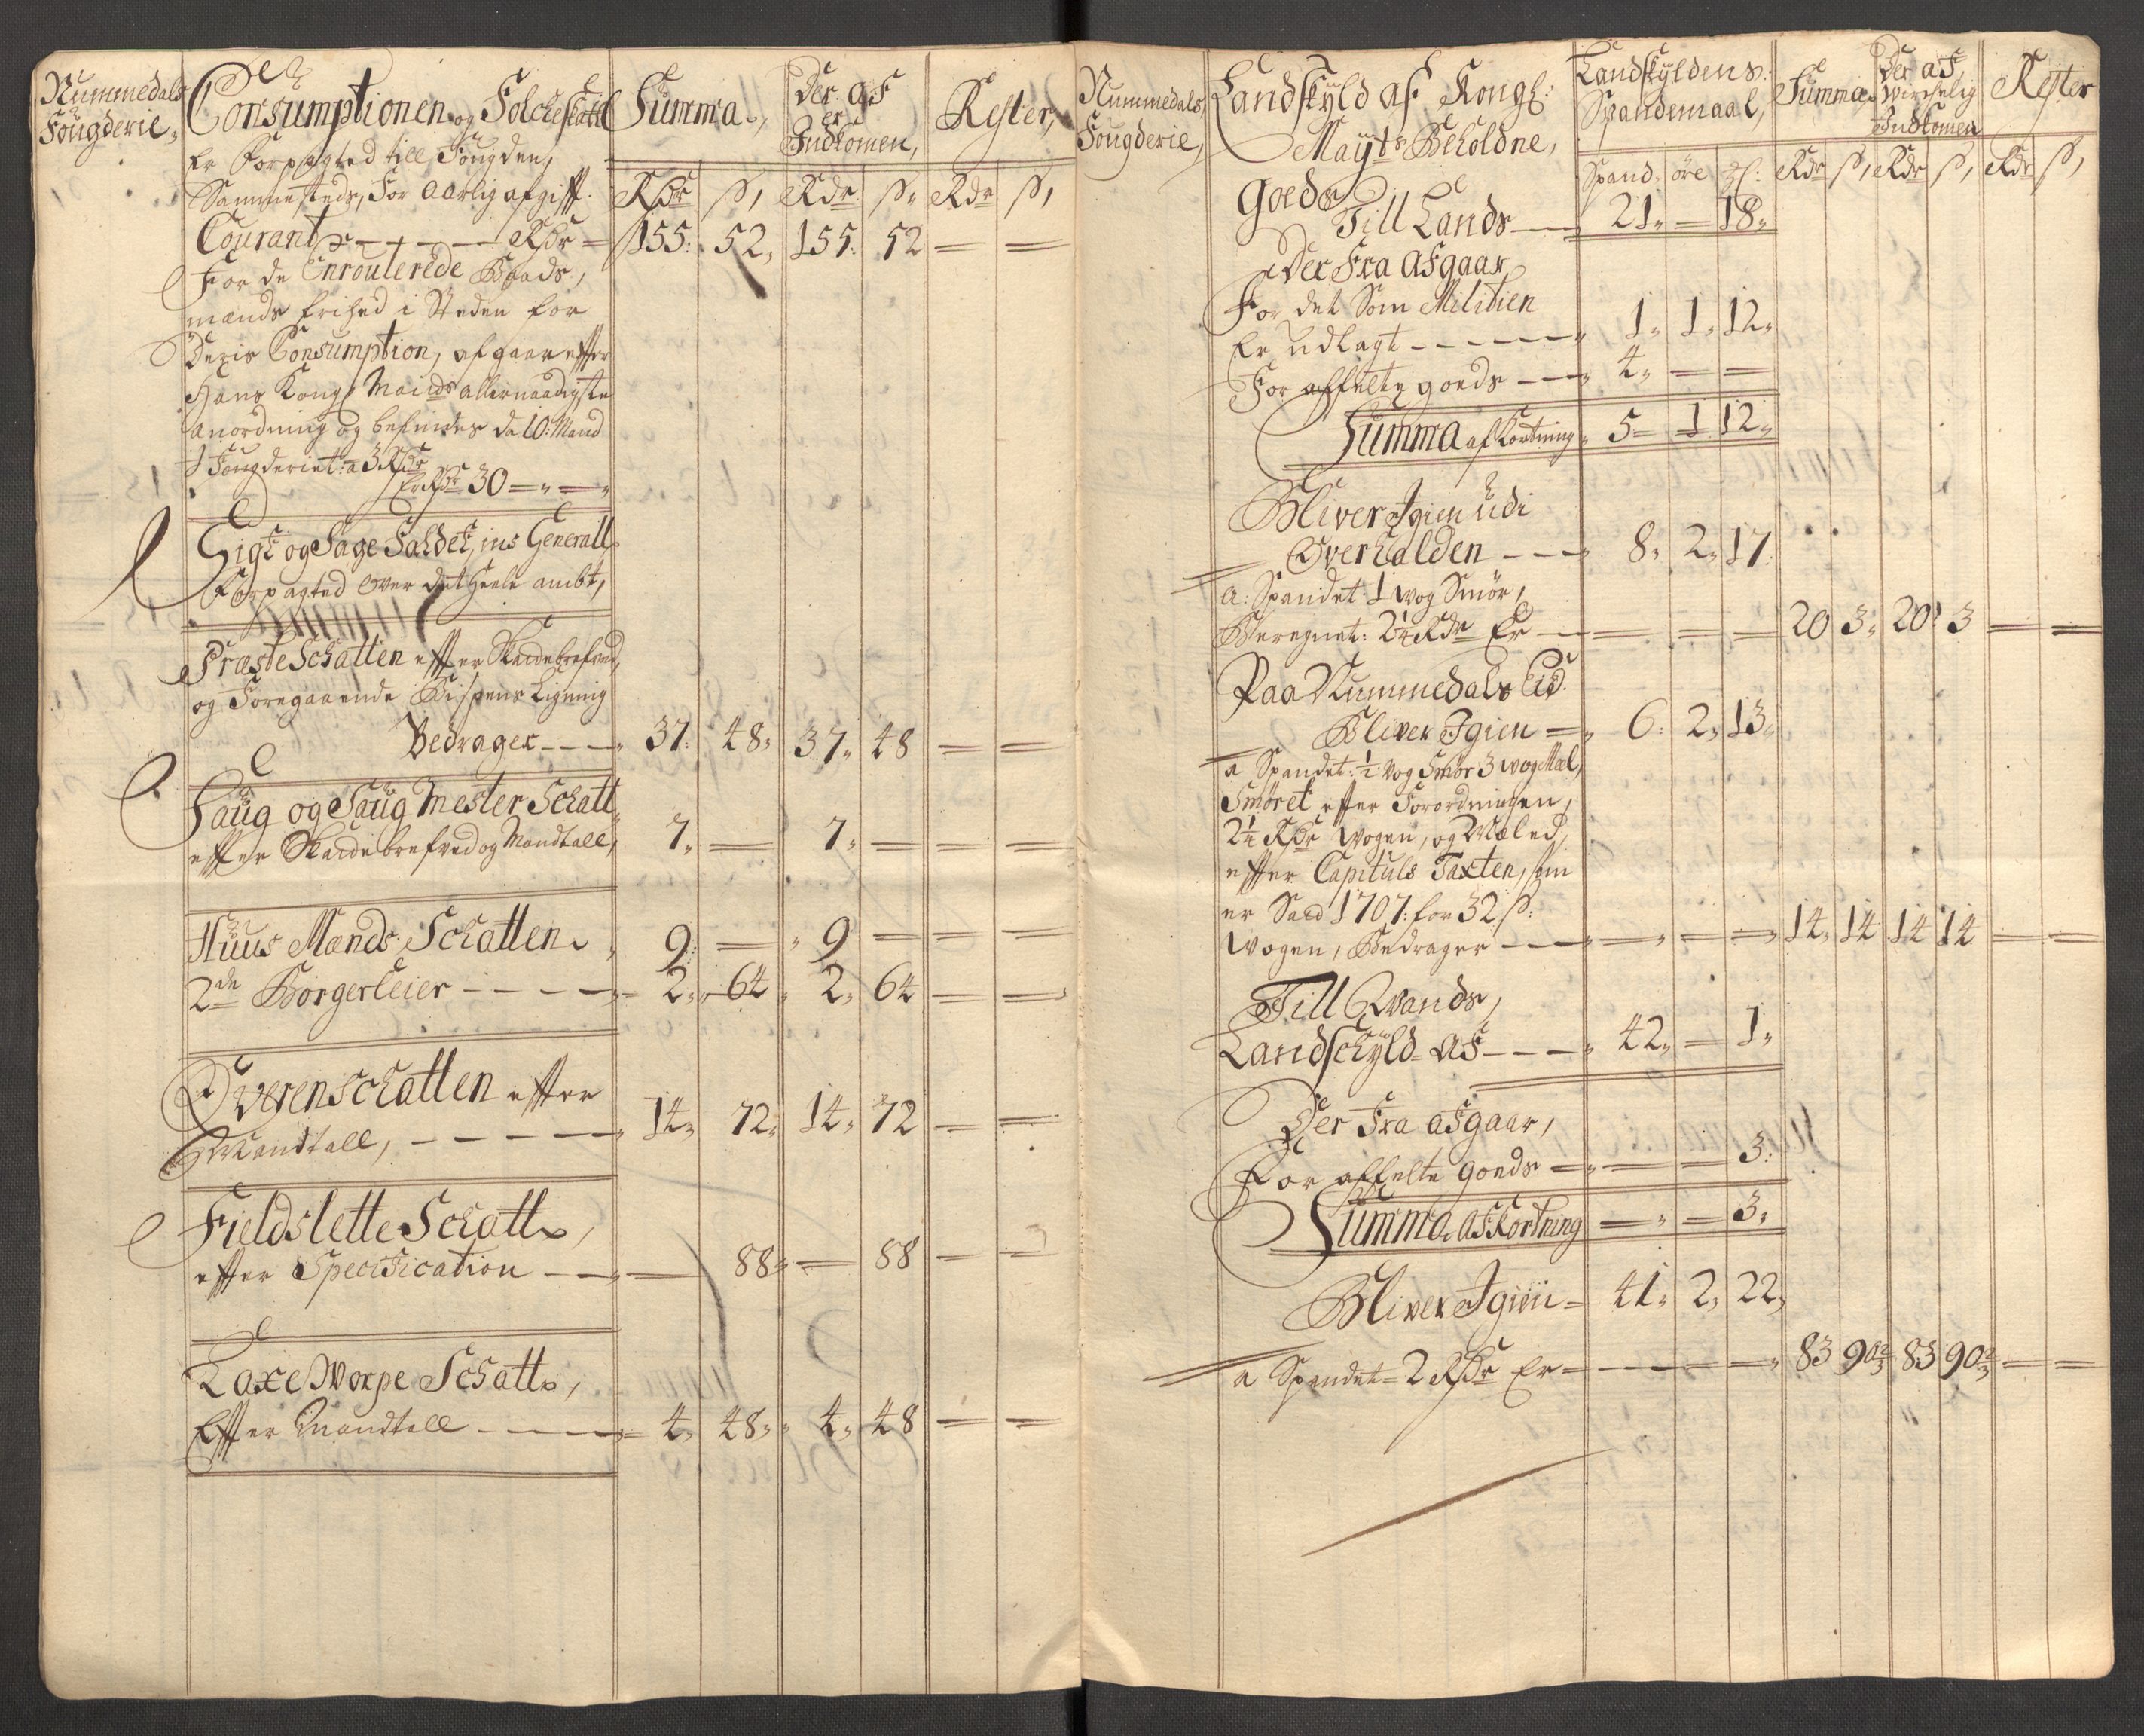 Nummedals
Fougderie,
Consumptionen og Folcheskatt
Er Forpagted till Fougden,
Sammesteds, For aarlig afgifft.
Courant Rdr
For de Enroulerede Baads,
mands frihed i Steden for
Deris Consumption, afgaar effter
Hans Kongl Maids allernaadigste
anordning og befindes da 10: Mand
I Fougderiet: a 3 Rdr
Er Rdr 30
Summa, Der af er Indkomen, Rester,
Rdr ß, Rdr ß, Rdr ß,
155: 52, 155: 52
Sigt og Sage Faldet, ins Generall
Forpagted over det Heele ambt,
Præste Schatten effter Skaidebrefved
og Foregaaende Bispens Ligning
Bedrager 37: 48, 37, 48
Saug og Saug Mester Schatt
effter Skaidebrefved og Mandtall, 7, 7,
Huus Mands Schatten 9: 9
2de Borgerleier 2, 64 2, 64
Qværenschatten effter
Mandtall, 14, 72, 14, 72
Fieldslette Schatt,
effter Specification 88 88
Laxe Worpe Schatt,
Effter Mandtall 4, 48, 4, 48
Nummedals
Fougderie,
Landskyld af Kongl:
Mayts Beholdne,
Goeds
Landskyldens
Spandemaal,
Summa, Der af Wirchelig Indkomen Rester
Spand, øre Rdr ß, Rdr ß, Rdr ß,
Till Lands 21, 18,
Der Fra Afgaar,
For det Som Militien
Er udlagt 1, 1, 12,
For affelte goeds 4,
Summa afkortning 5 1 12,
Bliver Igien udi
Overhalden 8, 2, 17.
a: Spandet: 1 Wog Smør,
Beregnet: 2¼ Rdr Er 20 3, 20 3
Paa Nummedals Eid
Bliver Igien 6: 2, 13,
a Spandet: ½ Wog Smør 3 wog Mæl,
Smøret effter Forordningen,
2¼ Rdr Wogen, og Mæled,
effter Capituls Taxten, som
er Sadd 1707: for 32 ß:
Wogen, Bedrager 14, 14 14 14
Till Wands,
Landschyld af 42, 1,
Der Fra afgaar,
For affelte goeds 3:
Summa afKortning 3,
Bliver Igien 41, 2, 22,
a Spandet 2 Rdr Er 83 90⅔ 83 90⅔